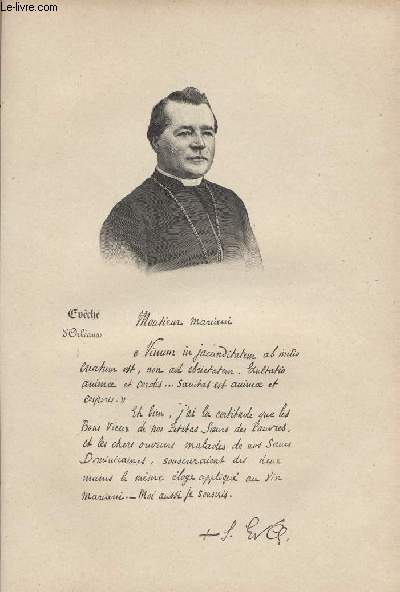 Le-livre.com
Evêche
d'Orléans
Monsieur Mariani
« Vinum in jucunditatem ab initio
creatum est, non ad ebrietatem. Exultatio
animæ et cordis... Sanitas est animæ et
corpori. »
Eh bien, j'ai la certitude que les
Bons Vieux de nos Petites Sœurs des Pauvres,
et les chers ouvriers malades de nos Sœurs
Dominicaines, souscriraient des deux
mains le même éloge appliqué au Vin
Mariani. — Moi aussi je souscris.
+ S.